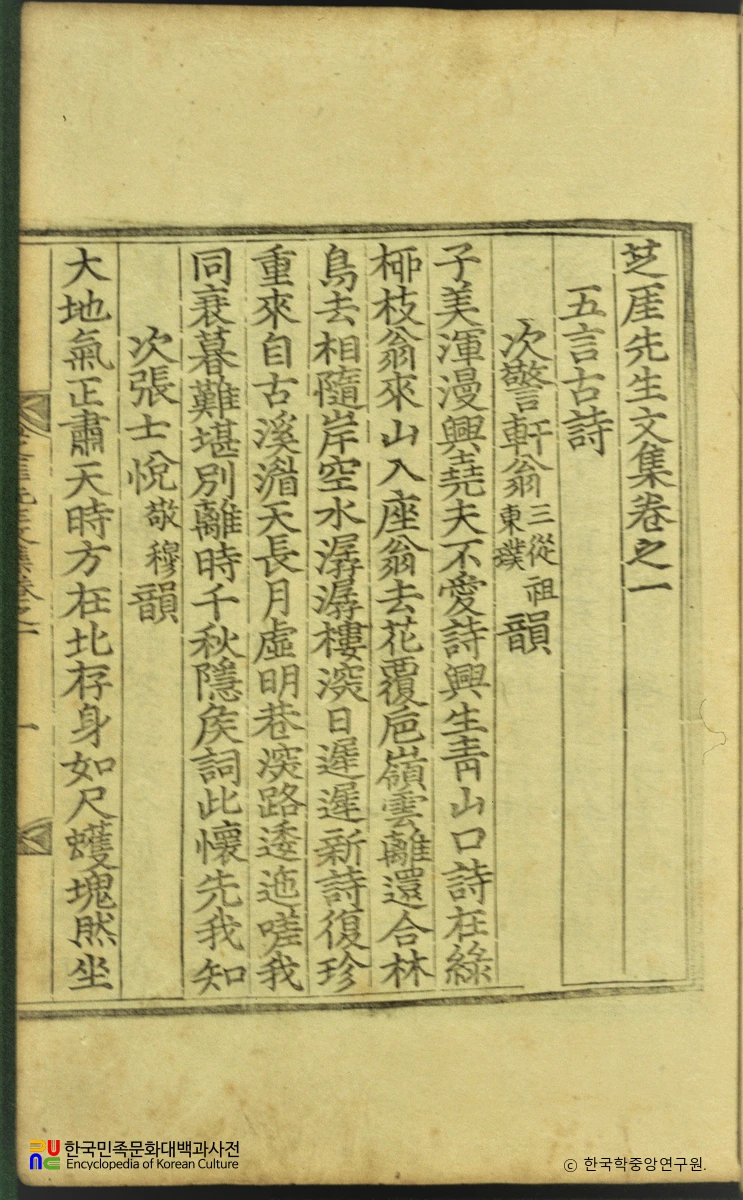 芝厓先生文集卷之一
五言古詩
次警軒翁三從祖東濮韻
子美渾漫興堯夫不愛詩興生靑山口詩在綠
柳枝翁來山入座翁去花覆巵嶺雲離還合林
鳥去相隨岸空水潺潺樓深日遲遲新詩復珍
重來自古溪湄天長月虛明巷深路逶迤嗟我
同衰暮難堪別離時千秋隱矦詞此懷先我知
次張士悅敬穆韻
大地氣正肅天時方在北存身如尺蠖塊然坐
一
한국민족문화대백과사전
Encyclopedia of Korean Culture
ⓒ 한국학중앙연구원.